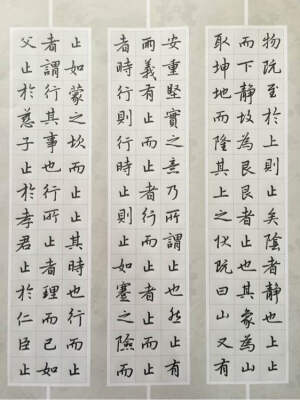 物既至於上則止矣陰者靜也上止
而下靜故為艮艮者止也其象為山
取坤地而隆其上之狀既曰山又有
安重堅實之意乃所謂止也然止有
兩義有止而止者行而止者止而止
者時行則行時止則止如蹇之險而
止如蒙之坎而止止其時也行而止
者謂行其事也行所止者理而已如
父止於慈子止於孝君止於仁臣止